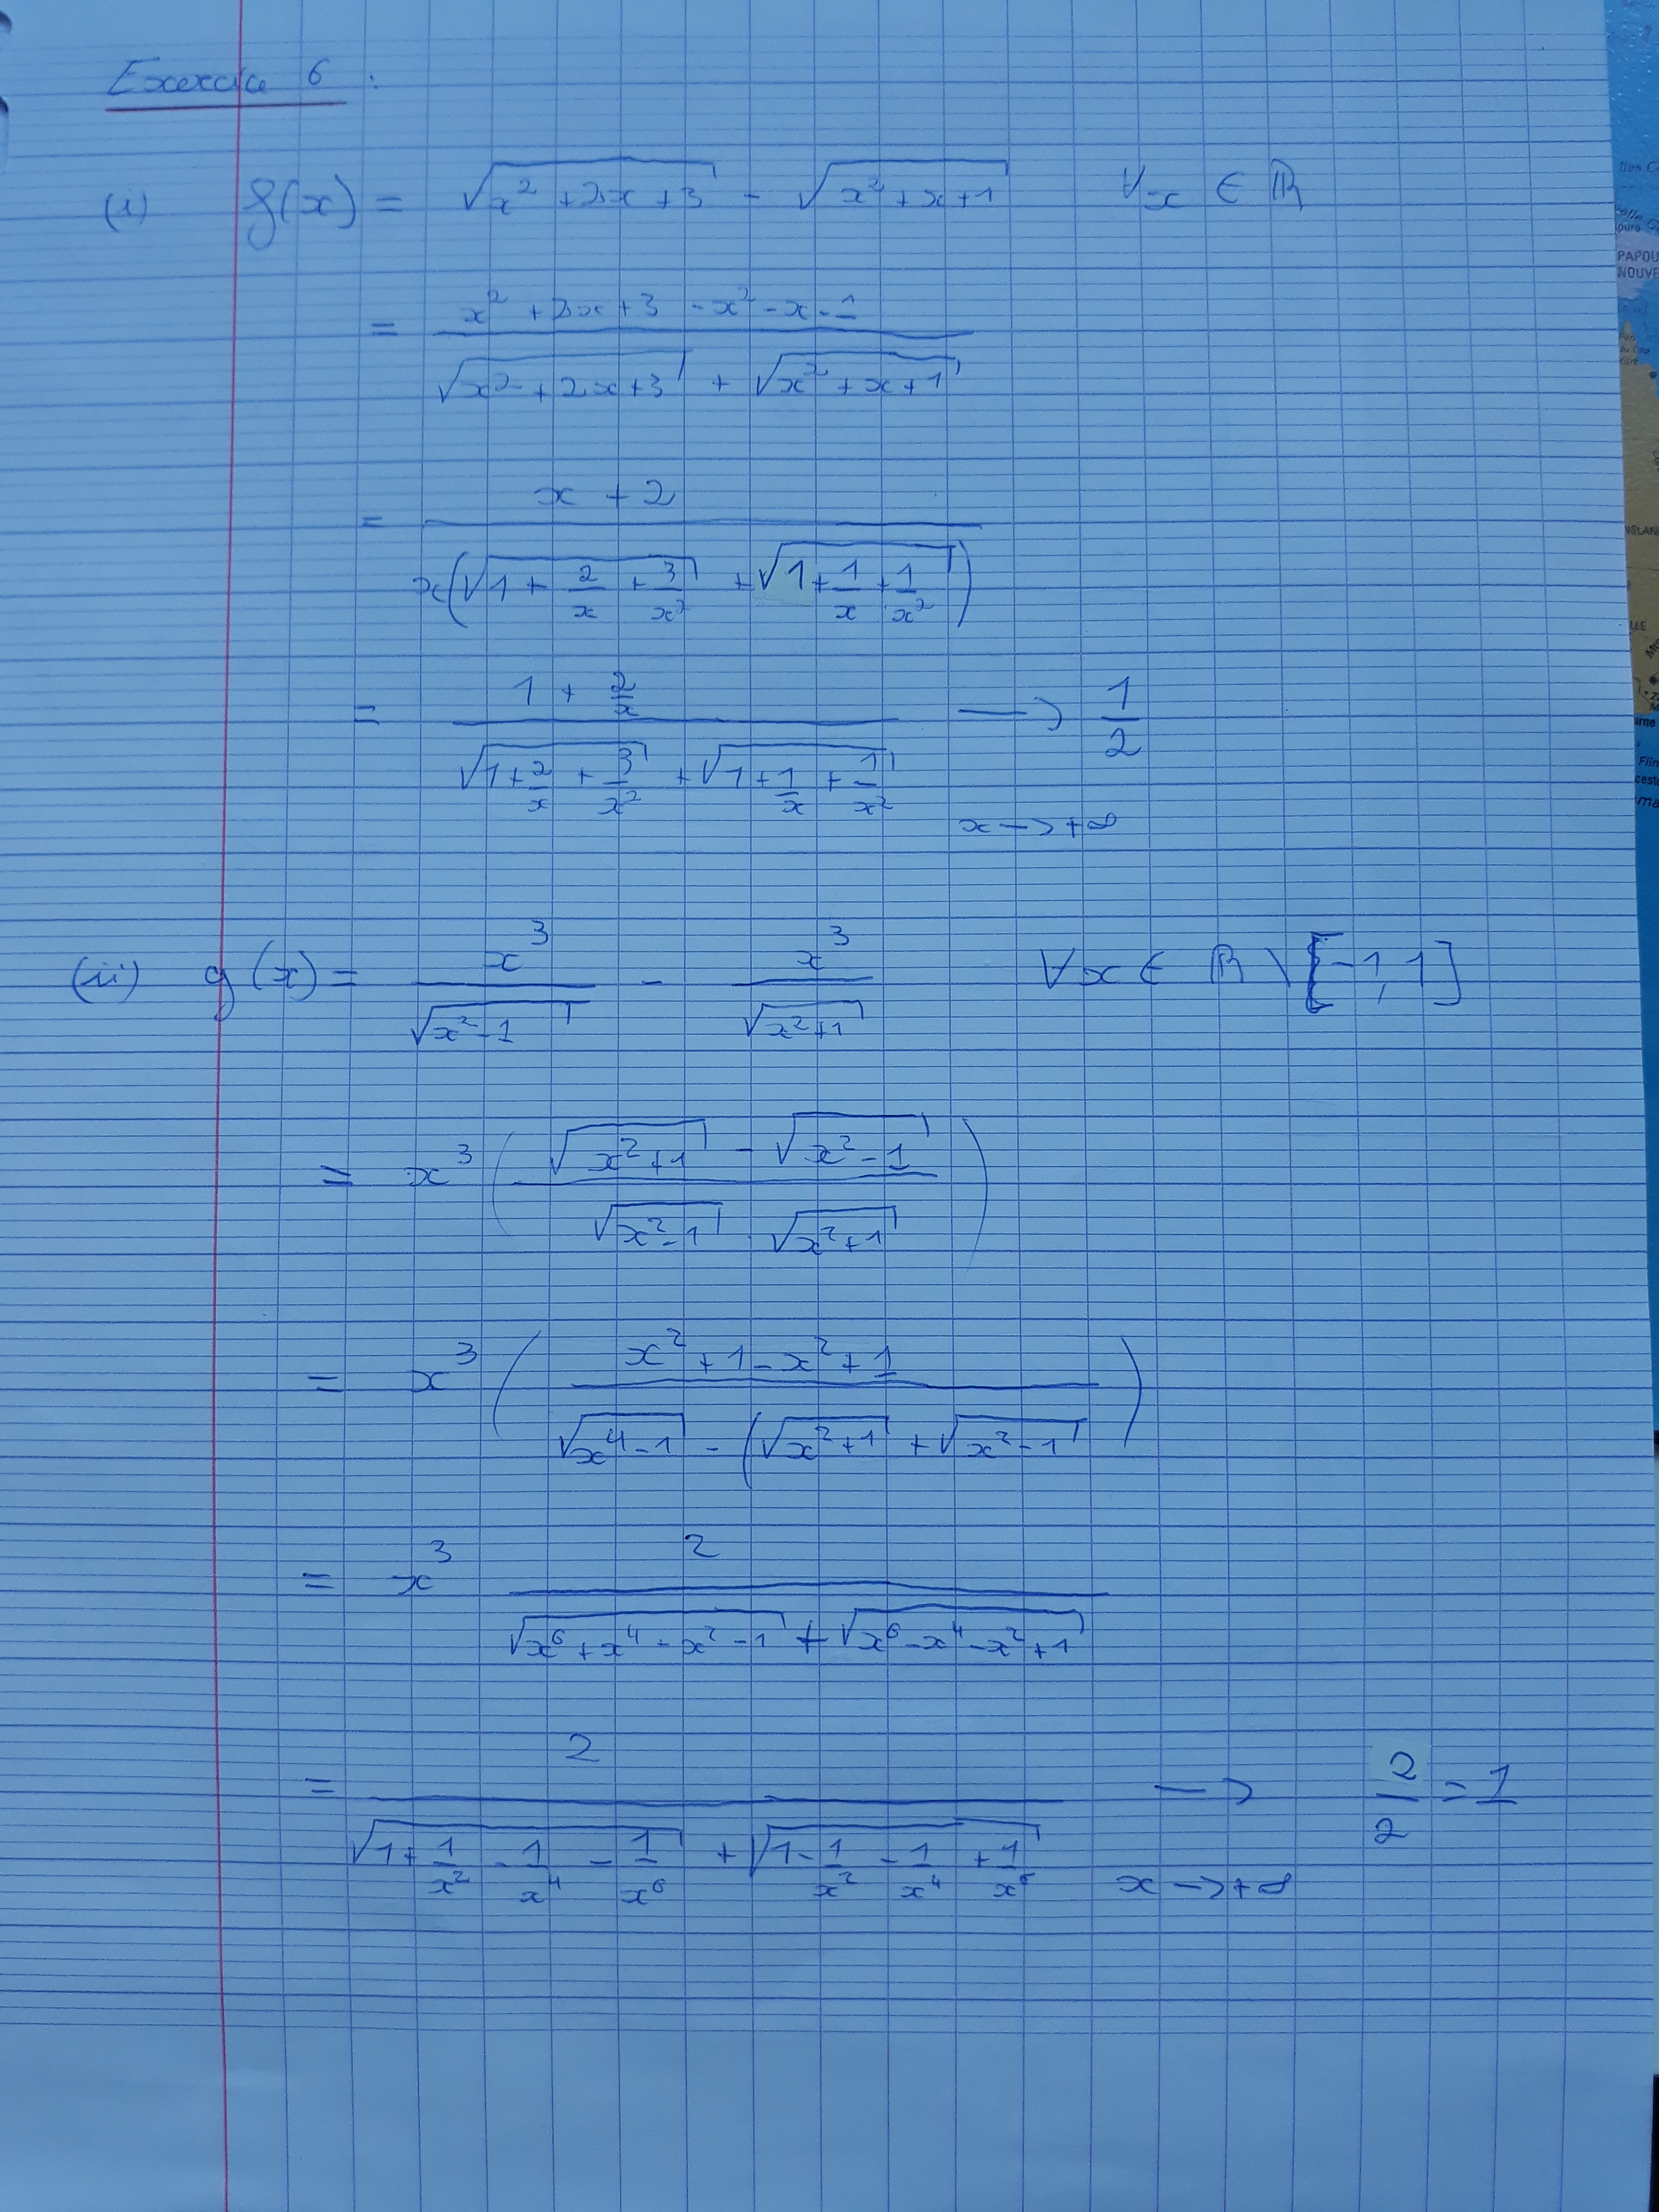 Exercice 6 :
(i) f(x) = √(x² + 2x + 3) - √(x² + x + 1) ∀x ∈ ℝ
= (x² + 2x + 3 - x² - x - 1) / (√(x² + 2x + 3) + √(x² + x + 1))
= (x + 2) / (x(√(1 + 2/x + 3/x²) + √(1 + 1/x + 1/x²)))
= (1 + 2/x) / (√(1 + 2/x + 3/x²) + √(1 + 1/x + 1/x²)) → 1/2
x → +∞
(ii) g(x) = x³/√(x² - 1) - x³/√(x² + 1) ∀x ∈ ℝ \ [-1, 1]
= x³ ((√(x² + 1) - √(x² - 1)) / (√(x² - 1) · √(x² + 1)))
= x³ ((x² + 1 - x² + 1) / (√(x⁴ - 1) - (√(x² + 1) + √(x² - 1)))
= x³ 2 / (√(x⁶ + x⁴ - x² - 1) + √(x⁶ - x⁴ - x² + 1))
= 2 / (√(1 + 1/x² - 1/x⁴ - 1/x⁶) + √(1 - 1/x² - 1/x⁴ + 1/x⁶)) → 2/2 = 1
x → +∞
PAPOU
NOUVE